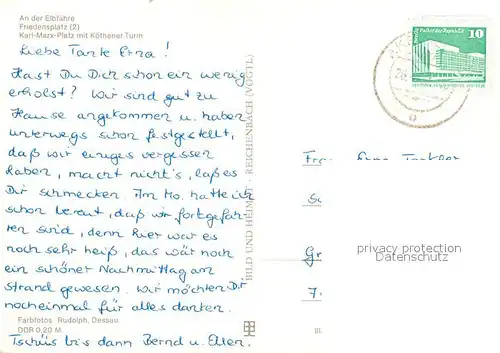 An der Elbfähre
Friedensplatz (2)
Karl-Marx-Platz mit Köthener Turm
Liebe Tante Erna!
Hast Du Dich schon ein wenig
erholst? Wir sind gut zu
Hause angekommen u. haben
unterwegs schon festgestellt,
daß wir einiges vergessen
haben, macht nicht's, laß es
Dir schmecken. Am Mo. hatte ich
schon bereut, daß wir fortgefah-
ren sind, denn hier war es
noch sehr heiß, das wär noch
ein schöner Nachmittag am
Strand gewesen. Wir möchten Dir
nocheinmal für alles danken.
Tschüs bis dann Bernd u. Ellen.
Farbfotos: Rudolph, Dessau
DDR 0,20 M
BILD UND HEIMAT REICHENBACH (VOGTL)
Berlin Palast der Republik
10
privacy protection
Datenschutz